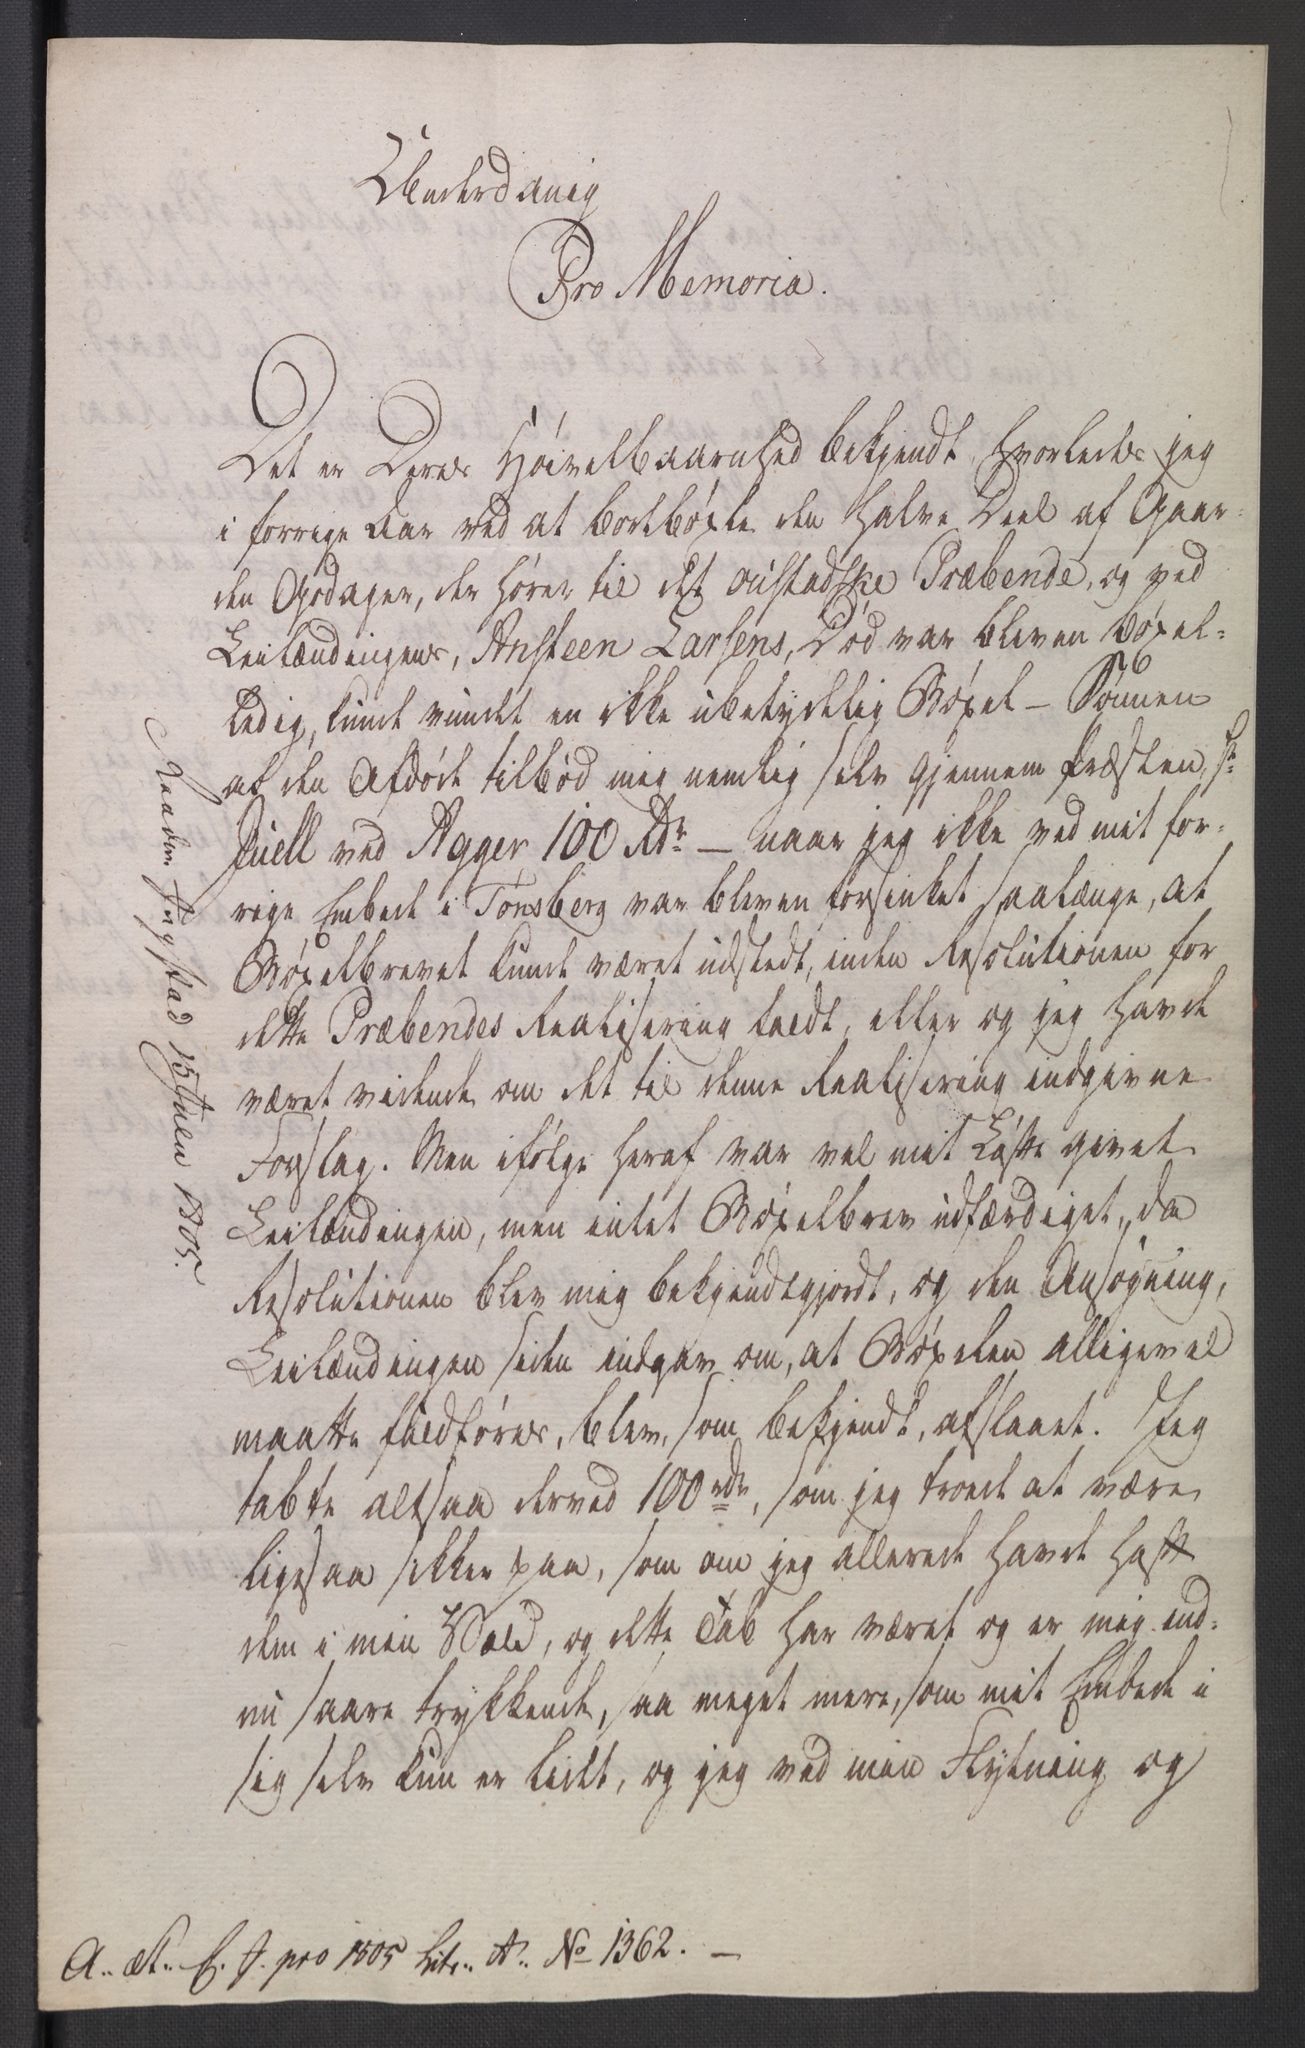 Underdanig
Pro Memoria.
Det er Deres Høivelbaarnhed bekjendt, hvorledes jeg
i forrige Aar ved at bortbøxle den halve Deel af Gaar-
den Opdager, der hører til det oustadske Præbende, og ved
Leilændingens, Ansteen Larsens, Død var bleven bøxel-
ledig, kunde vundet en ikke ubetydelig Bøxel – Sønnen
af den Afdøde tilbød mig nemlig selv gjennem Præsten, Hr
Juell ved Agger 100 Rdr – naar jeg ikke ved mit for-
rige Embede i Tønsberg var bleven forsinket saalænge, at
Bøxelbrevet kunde været udstedt, inden Resolutionen for
dette Præbendes Realisering faldt, eller og jeg havde
været vidende om det til denne Realisering indgivne
Forslag. Men ifølge heraf var vel mit Løfte givet
Leilændingen, men intet Bøxelbrev udfærdiget, da
Resolutionen blev mig bekjendtgjordt, og den Ansøgning,
Leilændingen siden indgav om, at Bøxelen alligevel
maatte fuldføres, blev, som bekjendt, afslaaet. Jeg
tabte altsaa derved 100 rdr, som jeg troede at være
ligesaa sikker paa, som om jeg allerede havde haft
dem i min Vold, og dette Tab har været og er mig end-
nu saare trykkende, saa meget mere, som mit Embede i
sig selv kun er lidt, og jeg ved min Flytning og
15 Julii 1805.
A.. St.. C. J. pro 1805 Litr.. A.. No 1362. –